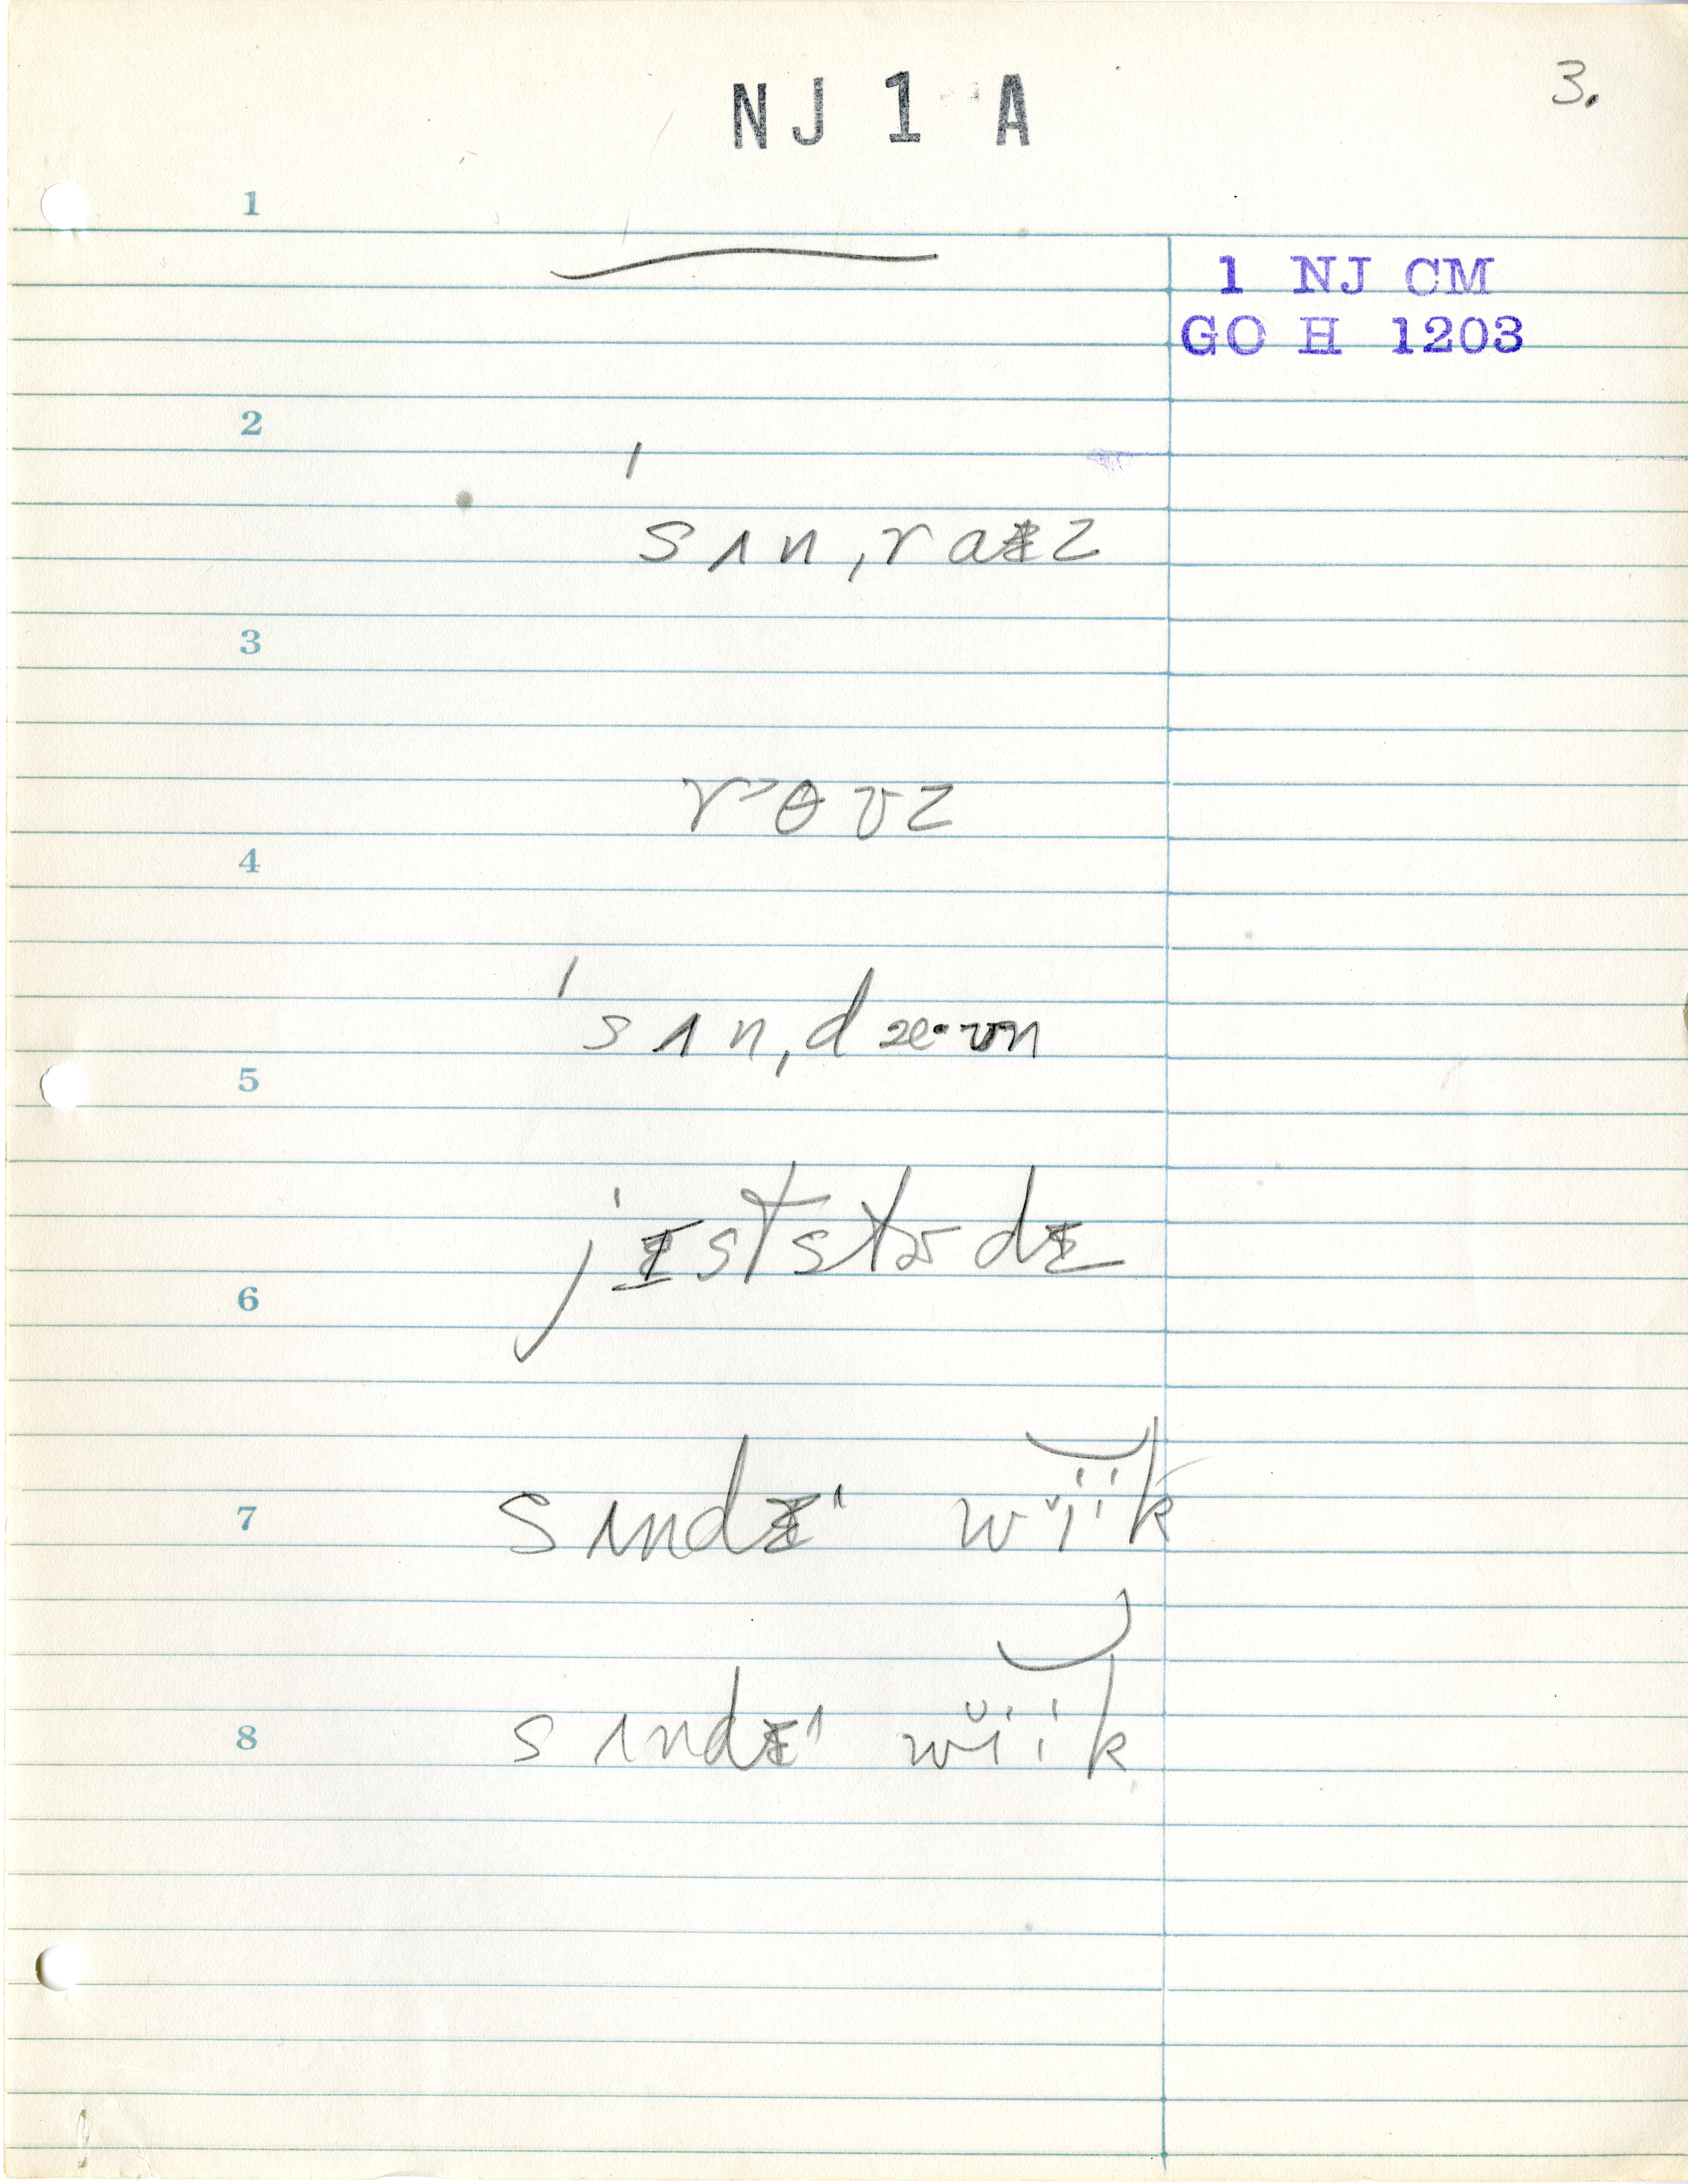 NJ 1 A
3.
1
1 NJ CM
GO H 1203
2
ˈsʌnˌraɪz
3
r˃ɵʊz
4
ˈsʌnˌdæ·ʊn
5
jɪststɚdɪ
6
7
sʌndɪ˄ wĭik
8
sʌndɪ˄ wĭik